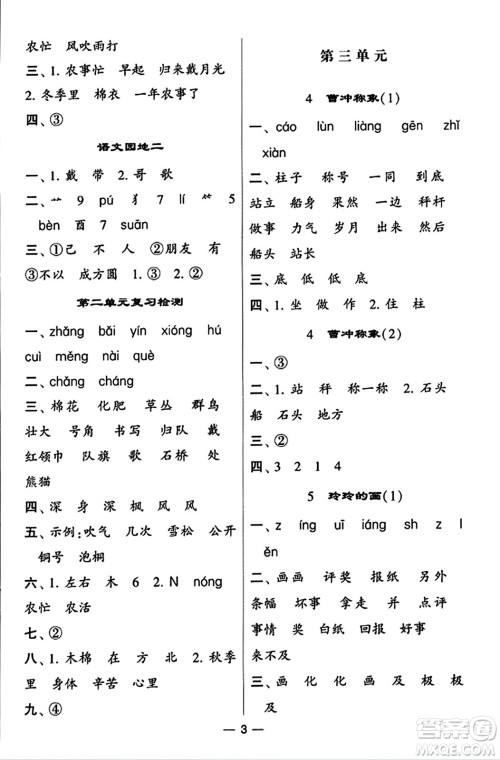 农忙 风吹雨打
三、1.农事忙 早起 归来戴月光
2.冬季里 棉衣 一年农事了
四、③
语文园地二
一、1.戴 带 2.哥 歌
二、艹 9 pú 犭 7 lí 艹 5
bèn 酉 7 suān
三、①己 不 人 ②朋友 有
③不以 成方圆
第二单元复习检测
一、zhǎng bǎi yín xióng hú
cuì mèng nài què
二、chǎng cháng
三、棉花 化肥 草丛 群鸟
壮大 号角 书写 归队 戴
红领巾 队旗 歌 石桥 处处
熊猫
四、深 身 深 枫 风 风
五、示例:吹气 几次 雪松 公开
铜号 泡桐
六、1.花 左右 木 6 2.N nóng
农忙 农活
七、②
八、1.木棉 在 方 北 2.秋季
里 身体 辛苦 心里
九、④
第三单元
4 曹冲称象(1)
一、cáo lùn liàng gēn zhǐ
xiàn
二、柱子 称号 一同 到底
站立 船身 果然 一边 秤杆
做事 力气 岁月 出来 然后
船头 站长
三、底 低 低 底
四、1.坐 做 作 2.住 柱
4 曹冲称象(2)
一、③
二、1.站 秤 称一称 2.石头
船 石头 地方
三、②
四、3 2 1 4
5 玲玲的画(1)
一、z íng uī iáng sh z l
ěn
二、画画 评奖 报纸 另外
条幅 坏事 拿走 并 点评
事情 奖 画报 只要 好事
来不及
三、画 化 化 画 及 极 极
及
3